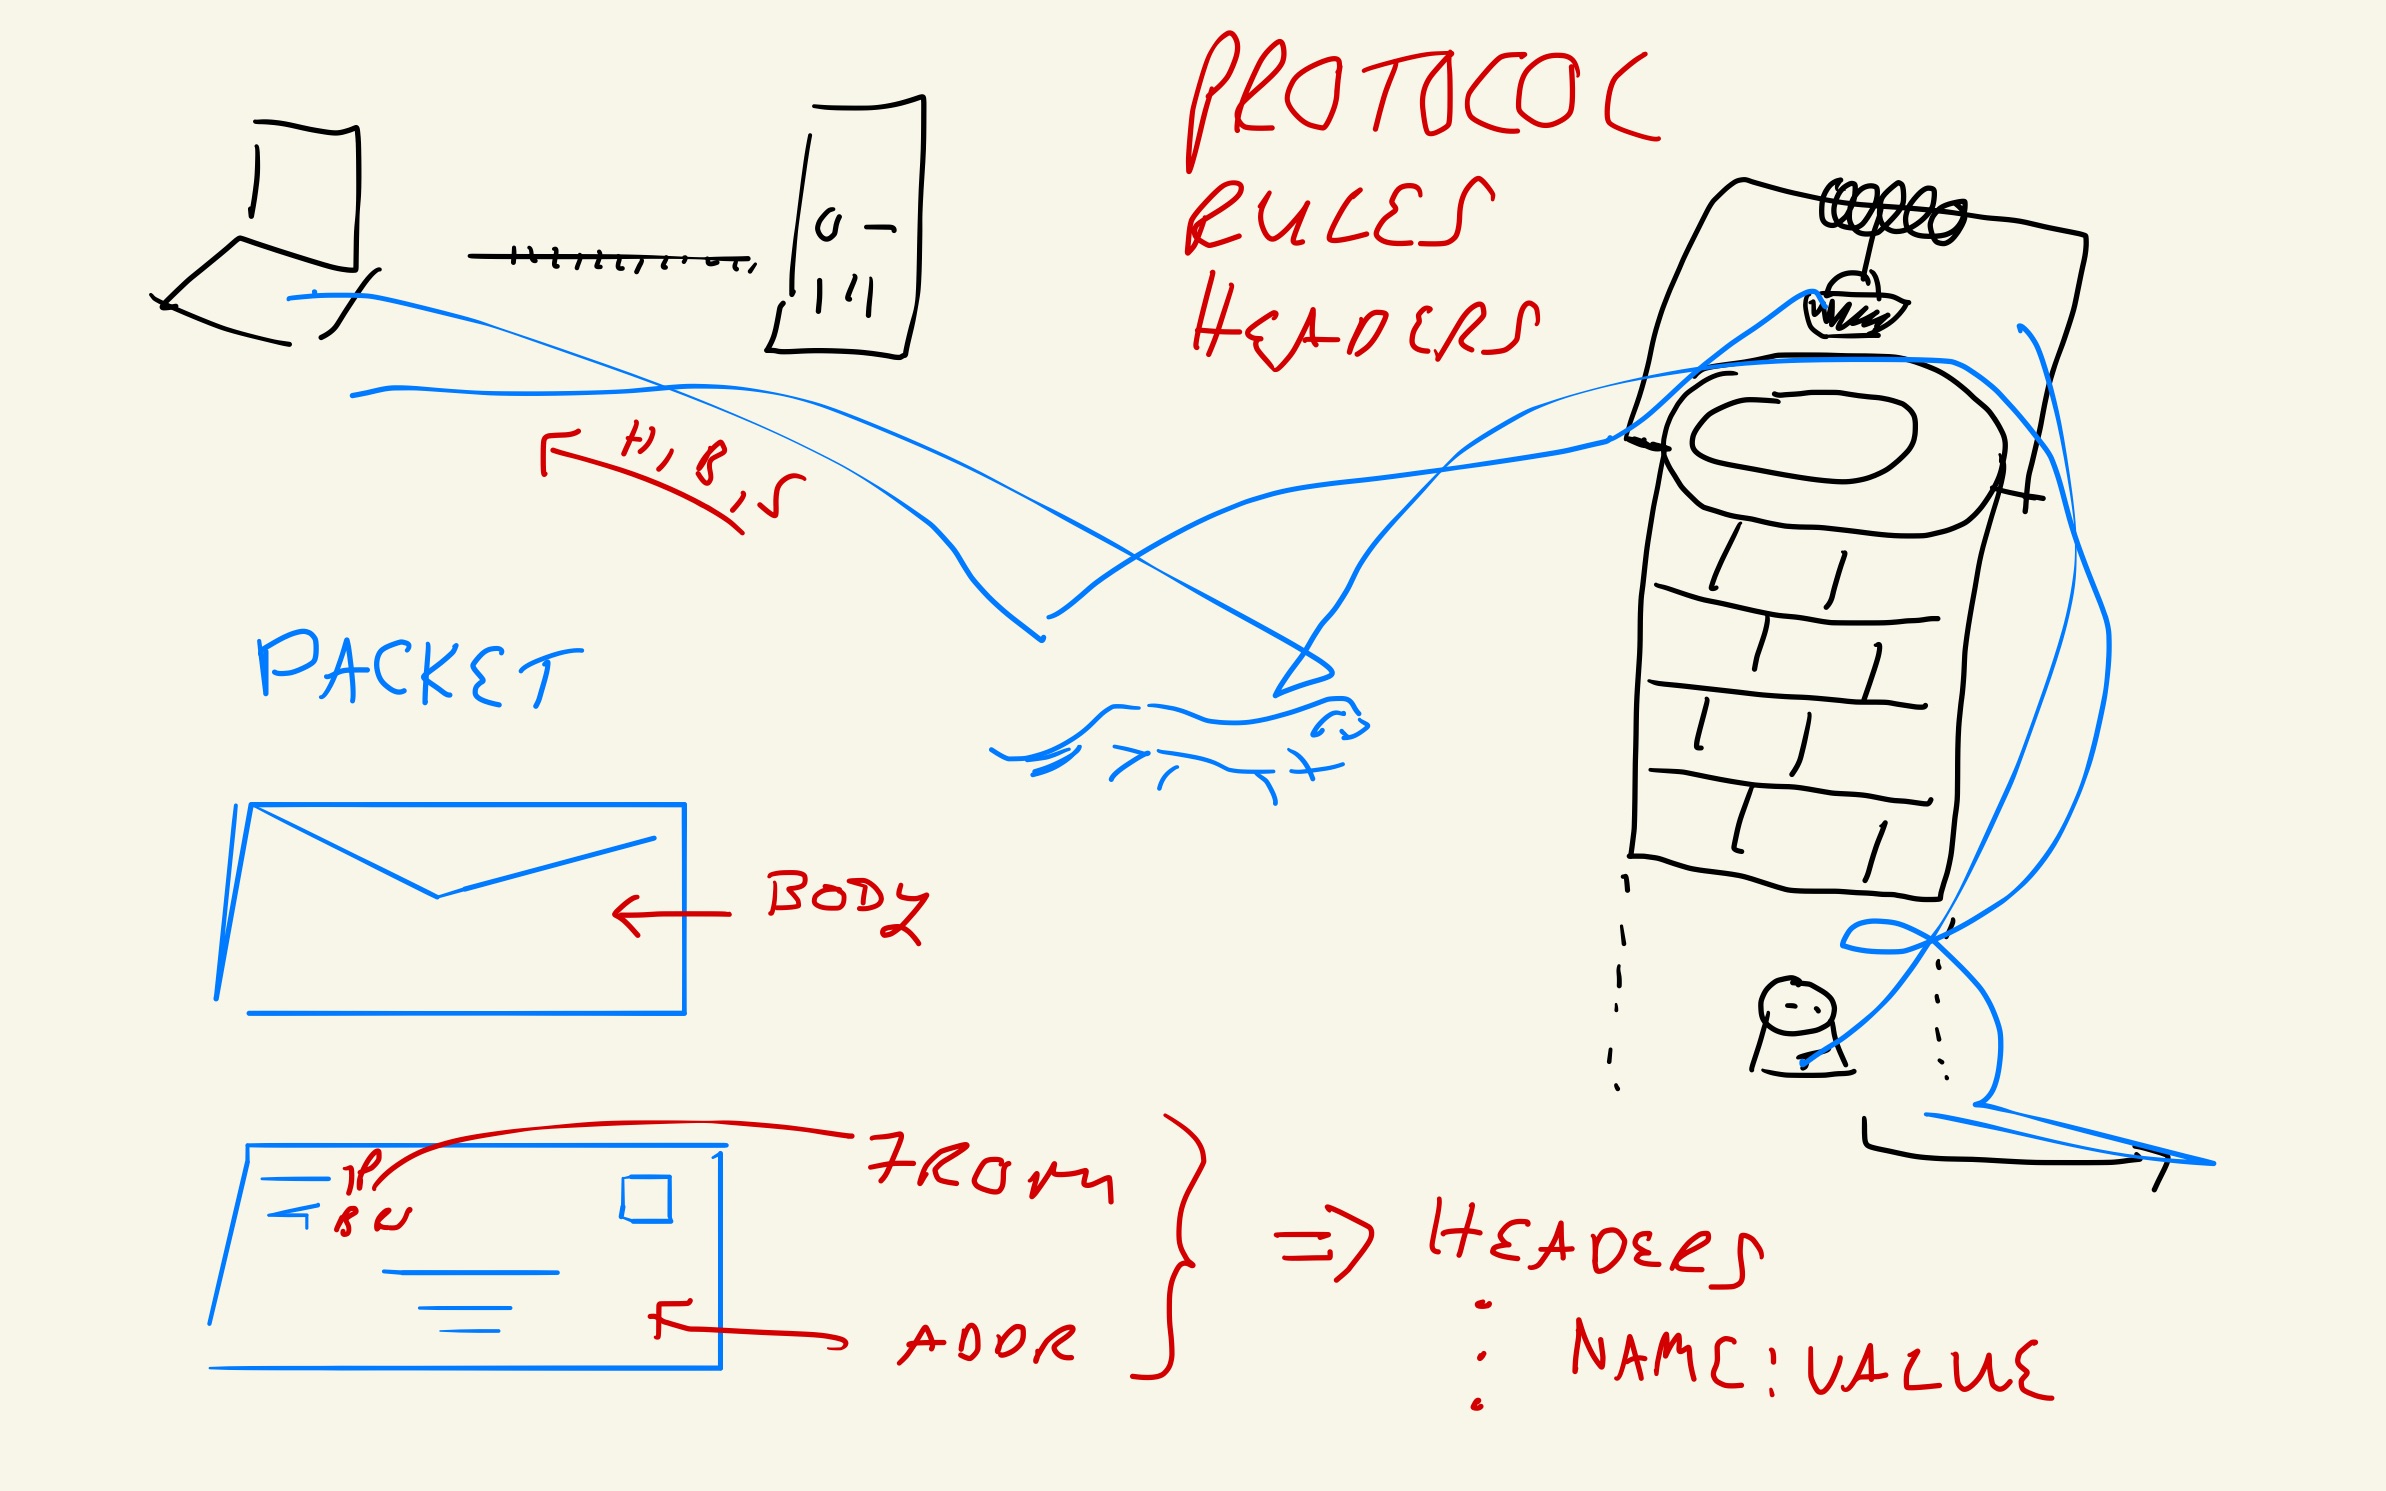 PROTOCOL
RULES
HEADERS
H, B, S
PACKET
BODY
FROM
ADDR
=> HEADERS
NAME: VALUE